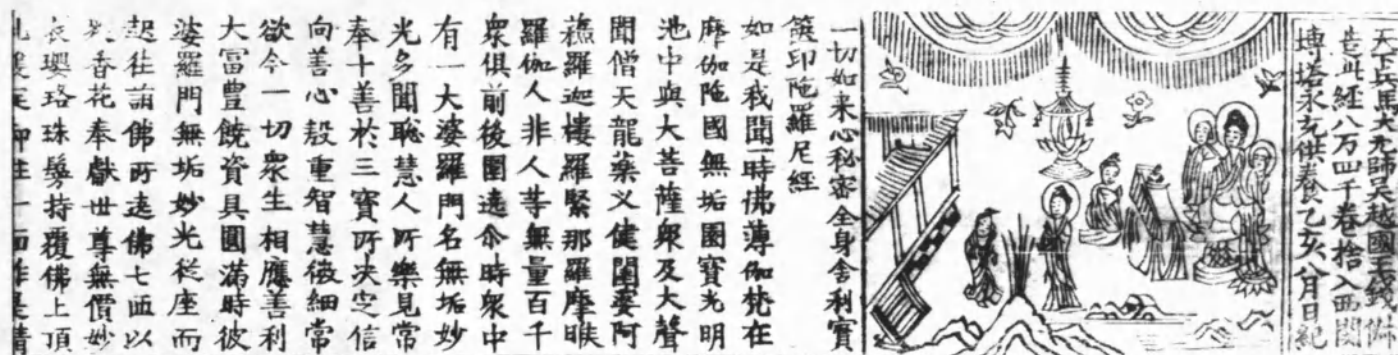 天下兵馬大元帥吳越國王錢俶
造此經八万四千卷捨入西関
塼塔永充供養乙亥八月日紀
一切如来心秘密全身舍利寳
篋印陁羅尼經
如是我聞一時佛薄伽梵在
摩伽陁國無垢園寳光明
池中與大菩薩衆及大聲
聞僧天龍藥叉健闥婆阿
蘓羅迦樓羅緊那羅摩睺
羅伽人非人等無量百千
衆俱前後圍遶尒時衆中
有一大婆羅門名無垢妙
光多聞聡慧人所樂見常
奉十善於三寳所决定信
向善心殷重智慧微細常
欲令一切衆生相應善利
大冨豊饒資具圓滿時彼
婆羅門無垢妙光從座而
起往詣佛所遶佛七迊以
衆香花奉獻世尊無價妙
衣瓔珞珠鬘持覆佛上頂
住一面作是請